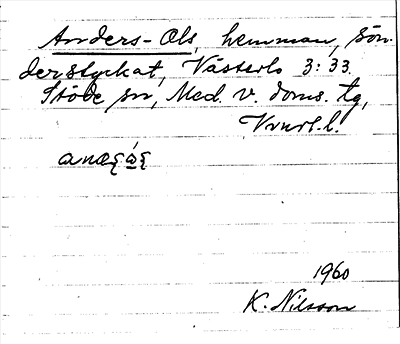 Anders-Ols, hemman, sön-
derstyckat, Västerlo 3:33.
Stöde sn, Med. v. doms. tg,
1960
K. Nilsson